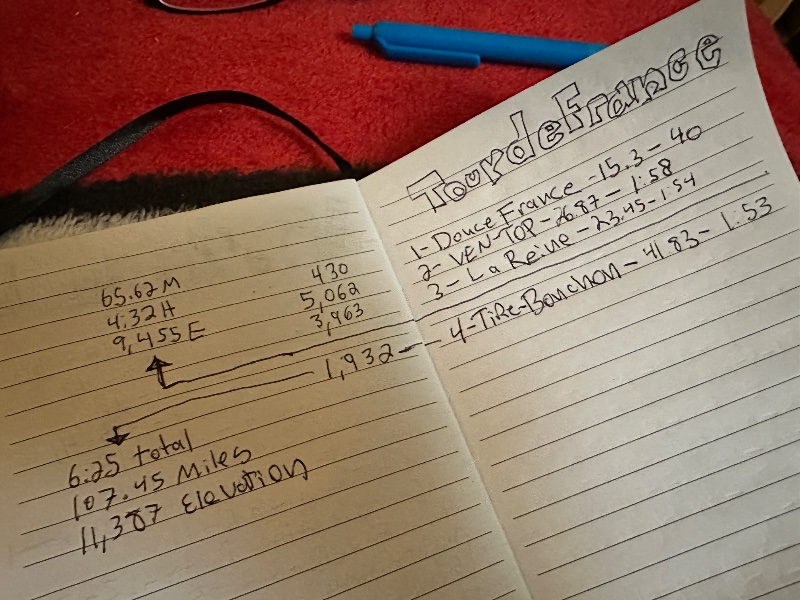 65.62 M
4:32 H
9,455 E
430
5,062
3,963
1,932
6:25 total
107.45 Miles
11,387 Elevation
Tour de France
1- Douce France - 15.3 - 40
2- VEN-TOP - 26.87 - 1:58
3- La Reine - 23.45 - 1:54
4- Tire-Bouchon - 41.83 - 1:53